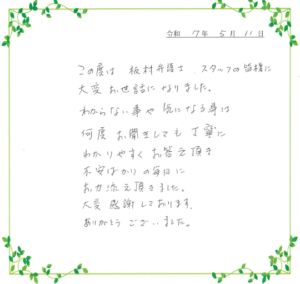 令和 7年 5月 11日
この度は 板村弁護士、スタッフの皆様に
大変お世話になりました。
わからない事や 気になる事は
何度 お聞きしても 丁寧に
わかりやすく お答え頂き
不安ばかり の毎日に
お力添え頂きました。
大変 感謝しております。
ありがとう ございました。